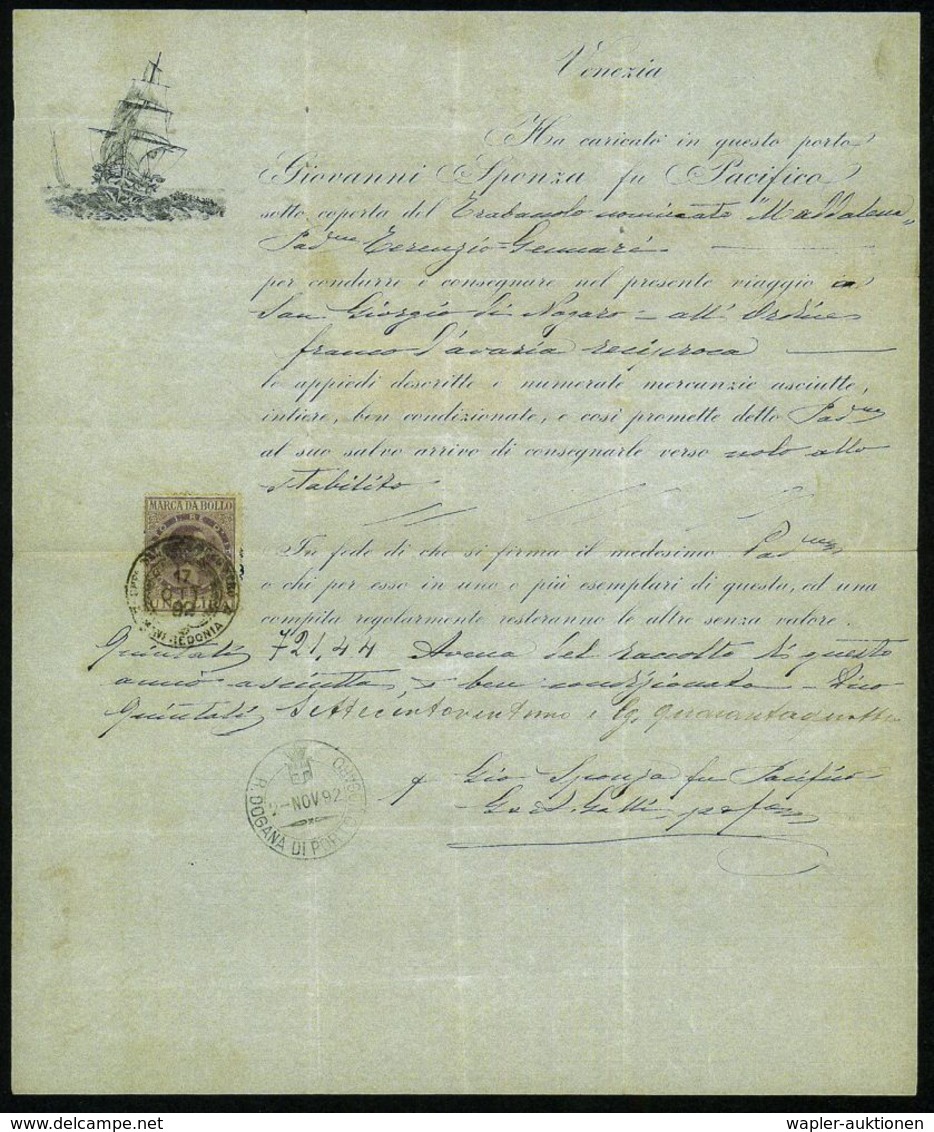 Venezia
Ha caricato in questo porto
Giovanni Sponza fu Pacifico
sotto coperta del Trabaccolo nominato "Maddalena"
Pad.ne Terenzio Gennari
per condurre e consegnare nel presente viaggio in
San Giorgio di Nogaro - all' Ordine
franco d'avaria reciproca
le appiedi descritte e numerate mercanzie asciutte,
intiere, ben condizionate, e così promette detto Pad.ne
al suo salvo arrivo di consegnarle verso nolo allo
stabilito
In fede di che si firma il medesimo Pad.ne
o chi per esso in uno o più esemplari di questa, ed una
compita regolarmente resteranno le altre senza valore.
Quintali 721,44 Avena del raccolto di questo
anno asciutta, e ben condizionata - Dico
Quintali Settecentoventuno e Kg. quarantaquattro
p Gio Sponza fu Pacifico
MARCA DA BOLLO
UNA LIRA
17
OTT
92
MANFREDONIA
R. DOGANA DI PORTO NOGARO
2-NOV 92
wapler-auktionen